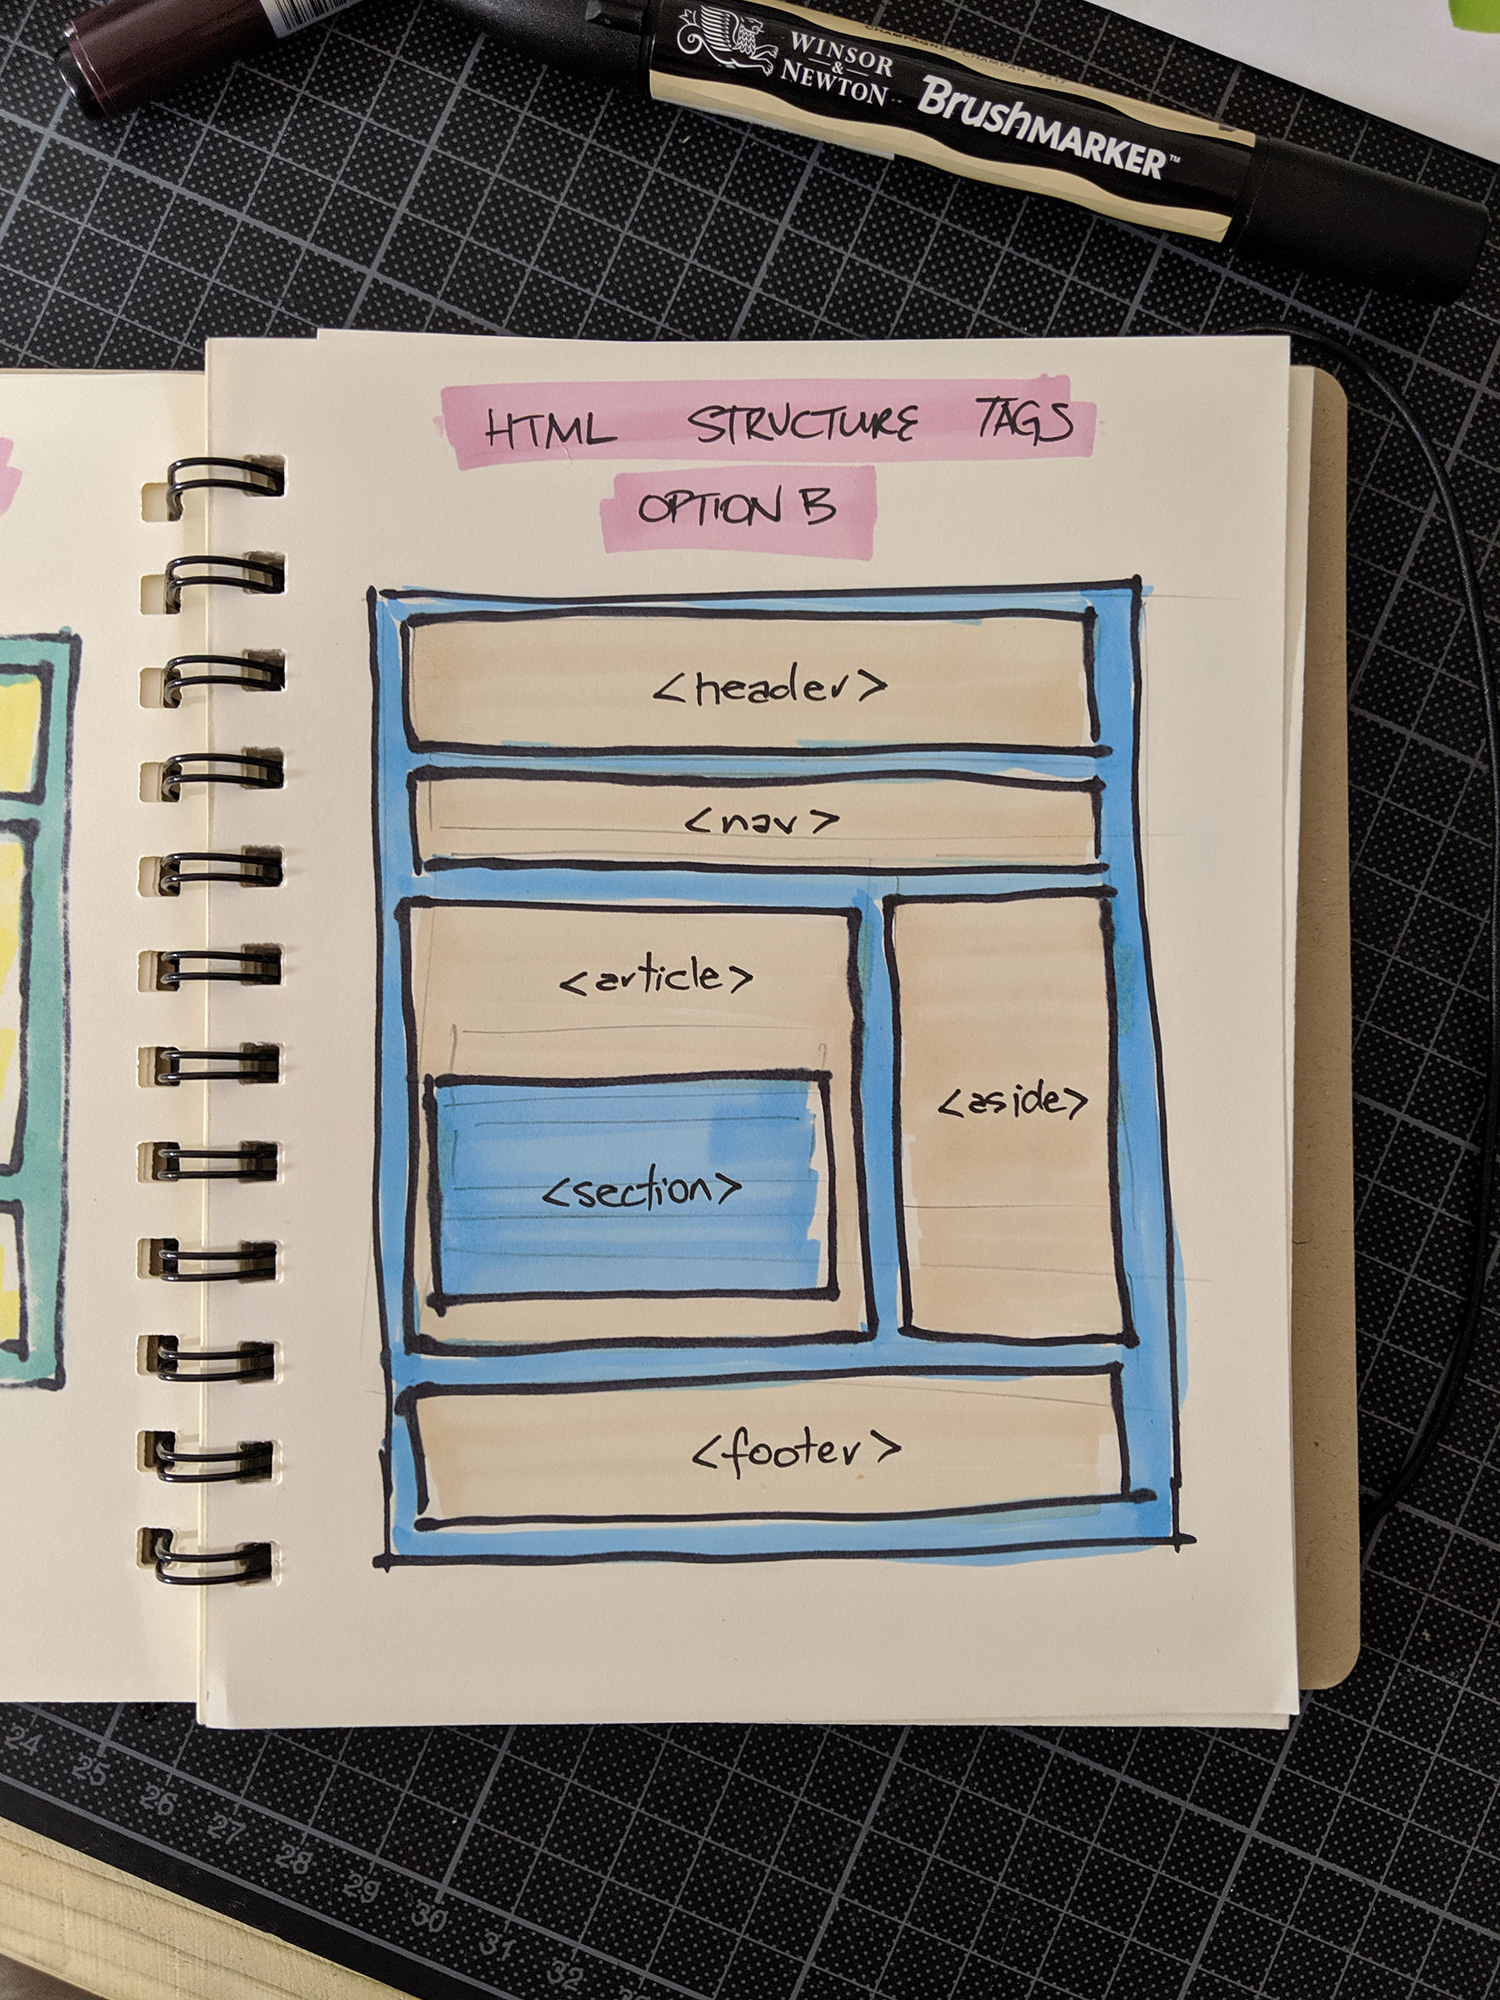 WINSOR
&
NEWTON
BrushMARKER™
HTML STRUCTURE TAGS
OPTION B
<header>
<nav>
<article>
<section>
<aside>
<footer>
24
25
26
27
28
29
30
31
32